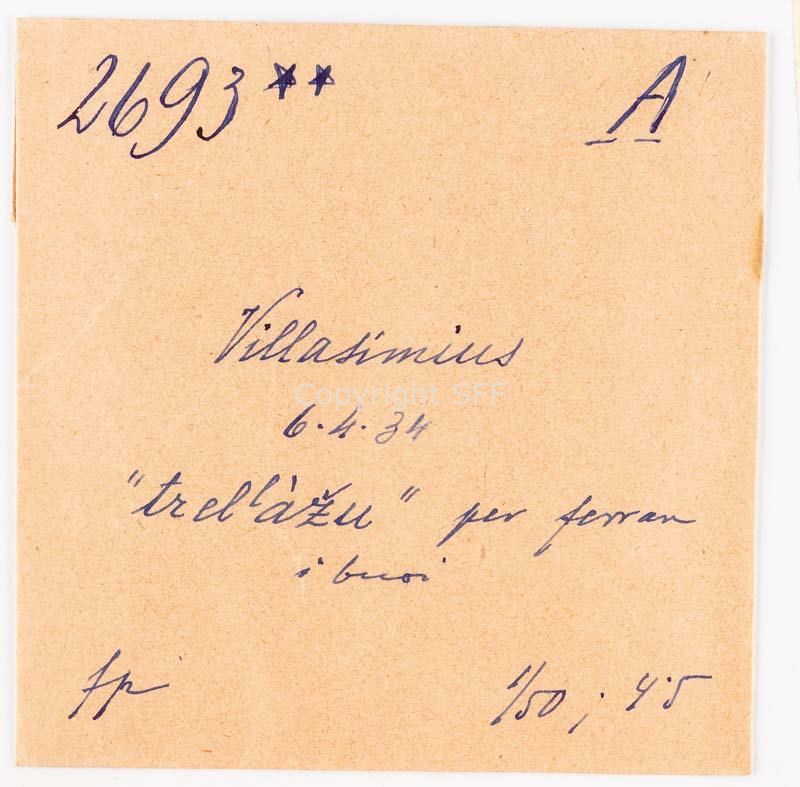 2693** A
Villasimius
Copyright SFF
6.4.34
"trel'àžu" per ferrar
i buoi
fp 1/50; 4'5